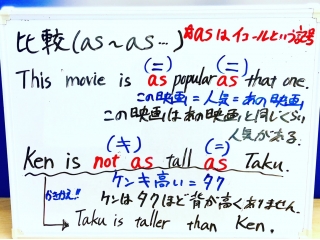 比較(as~as…) ※asはイコールという記号
(=) (=)
This movie is as popular as that one.
この映画 = 人気 = あの映画
この映画はあの映画と同じくらい
人気がある。
(キ) (=)
Ken is not as tall as Taku.
ケンキ高い=タク
かきかえ!! ケンはタクほど背が高くありません。
Taku is taller than Ken.